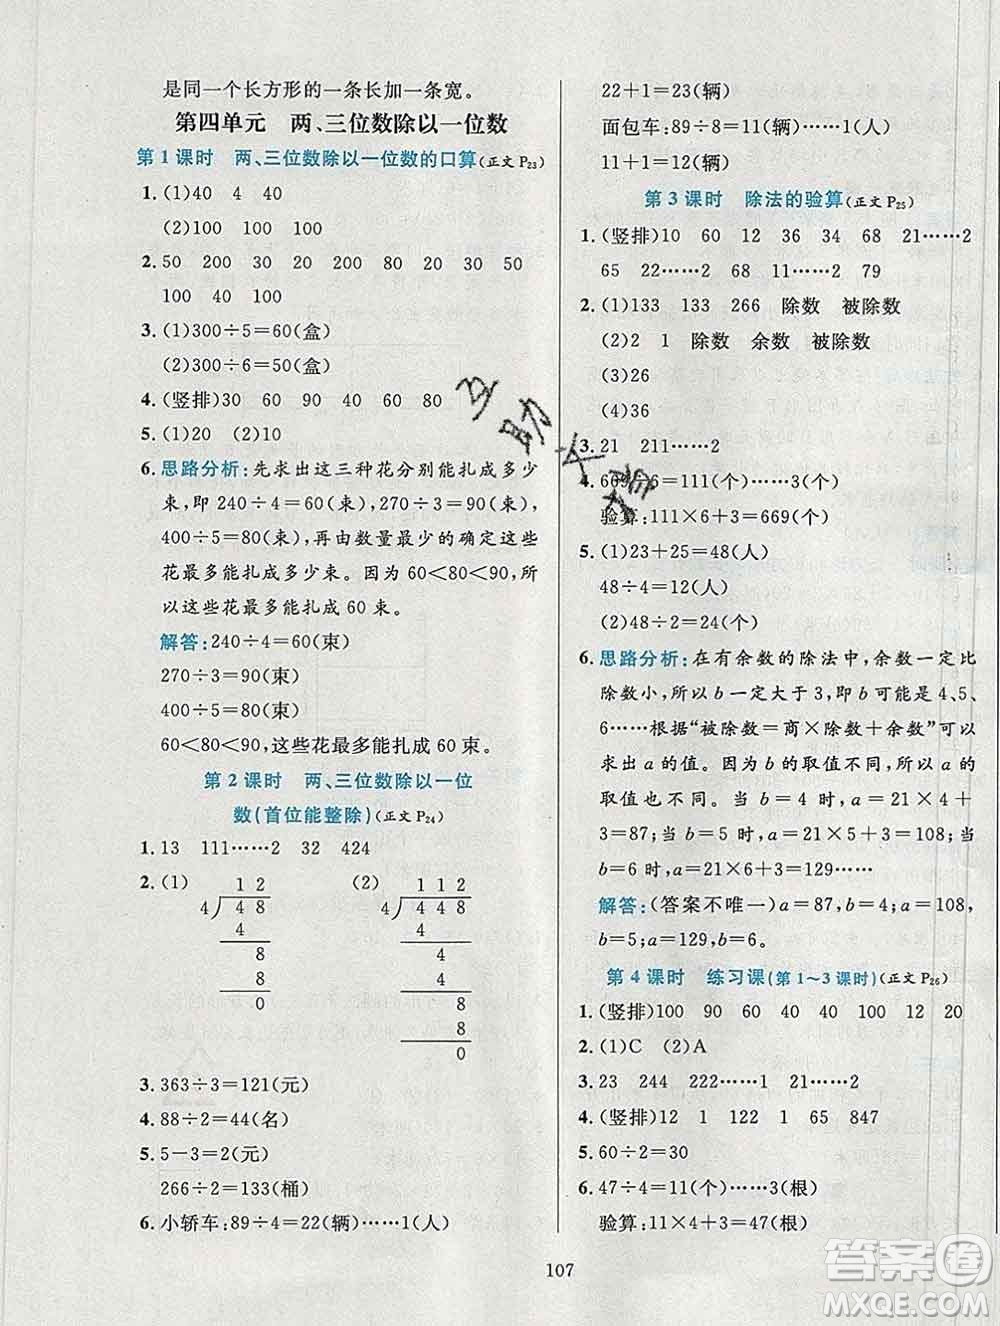 是同一个长方形的一条长加一条宽。
第四单元 两、三位数除以一位数
第1课时 两、三位数除以一位数的口算(正文P23)
1. (1)40 4 40
(2)100 100 100
2. 50 200 100 80 20 30 50
100 40 100
3. (1)300÷5=60(盒)
(2)300÷5=60(盒)
4. (竖排)30 60 90 40 60 80
5. (1)20 (2)10
6. 思路分析:先求出这三种花分别能扎成多少
束,即 240÷4=60(束),270÷3=90(束),
400÷5=80(束),再由数量最少的确定这些
花最多能扎成多少束。因为60<80<90,所
以这些花最多能扎成 60 束。
解答:240÷4=60(束)
270÷3=90(束)
400÷5=80(束)
60<80<90,这些花最多能扎成 60 束。
第2课时 两、三位数除以一位
数(首位能整除)(正文P24)
1. 13 111……2 32 424
2. (1) 12 (2) 112
4 48 4 448
4 4
8 4
8 4
0 8
8
0
3. 363÷3=121(元)
4. 88÷2=44(名)
5. 5-3=2(元)
266÷2=133(桶)
6. 小轿车:89÷4=22(辆)……1(人)
22+1=23(辆)
面包车:89÷8=11(辆)……1(人)
11+1=12(辆)
第3课时 除法的验算(正文P25)
1. (竖排)10 60 12 36 34 68 21……2
65 22……2 70 11……2 79
2. (1)133 133 266 除数 被除数
(2)2 1 除数 余数 被除数
(3)26
(4)36
3. 21 211……2
4. 669÷6=111(个)……3(个)
验算:111×6+3=669(个)
5. (1)23+25=48(人)
48÷4=12(人)
(2)48÷2=24(个)
6. 思路分析:在有余数的除法中,余数一定比
除数小,所以b一定大于3,即b可能是4、5、
6……根据“被除数=商×除数+余数”可以
求出a的值。因为b的取值不同,所以a的
取值也不同。当b=4时,a=21×4+
3=87;当b=5时,a=21×5+3=108;当
b=6时,a=21×6+3=129……
解答:(答案不唯一)a=87,b=4;a=108,
b=5;a=129,b=6。
第4课时 练习课(第1~3课时)(正文P26)
1. (竖排)100 90 60 40 40 100 20
2. (1)C (2)A
3. 23 244 222……1 21……2
4. (竖排)12 1 122 1 65 847
5. 60÷2=30
6. 47÷4=11(个)……3(根)
验算:11×4+3=47(根)
107
答案圈
MXQE.COM